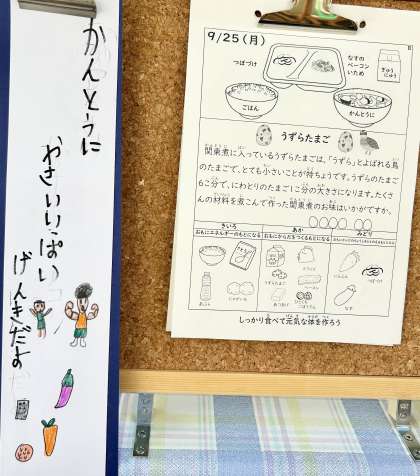 かんとうに
やさいいっぱい
げんきだよ
9/25(月)
つぼづけ
なすの
ベーコン
いため
ぎゅう
にゅう
ごはん
かんとうに
うずらたまご
関東煮に入っているうずらたまごは、「うずら」とよばれる鳥
のたまごで、とても小さいことが特ちょうです。うずらのたまご
6こ分で、にわとりのたまご1こ分の大きさになります。たくさ
んの材料を煮こんで作った関東煮のお味はいかがですか。
きいろ
あか
みどり
おもにエネルギーのもとになる
おもにからだをつくるもとになる
こめ
じゃがいも
うずらたまご
ベーコン
にんじん
つぼづけ
なす
しっかり食べて元気な体を作ろう